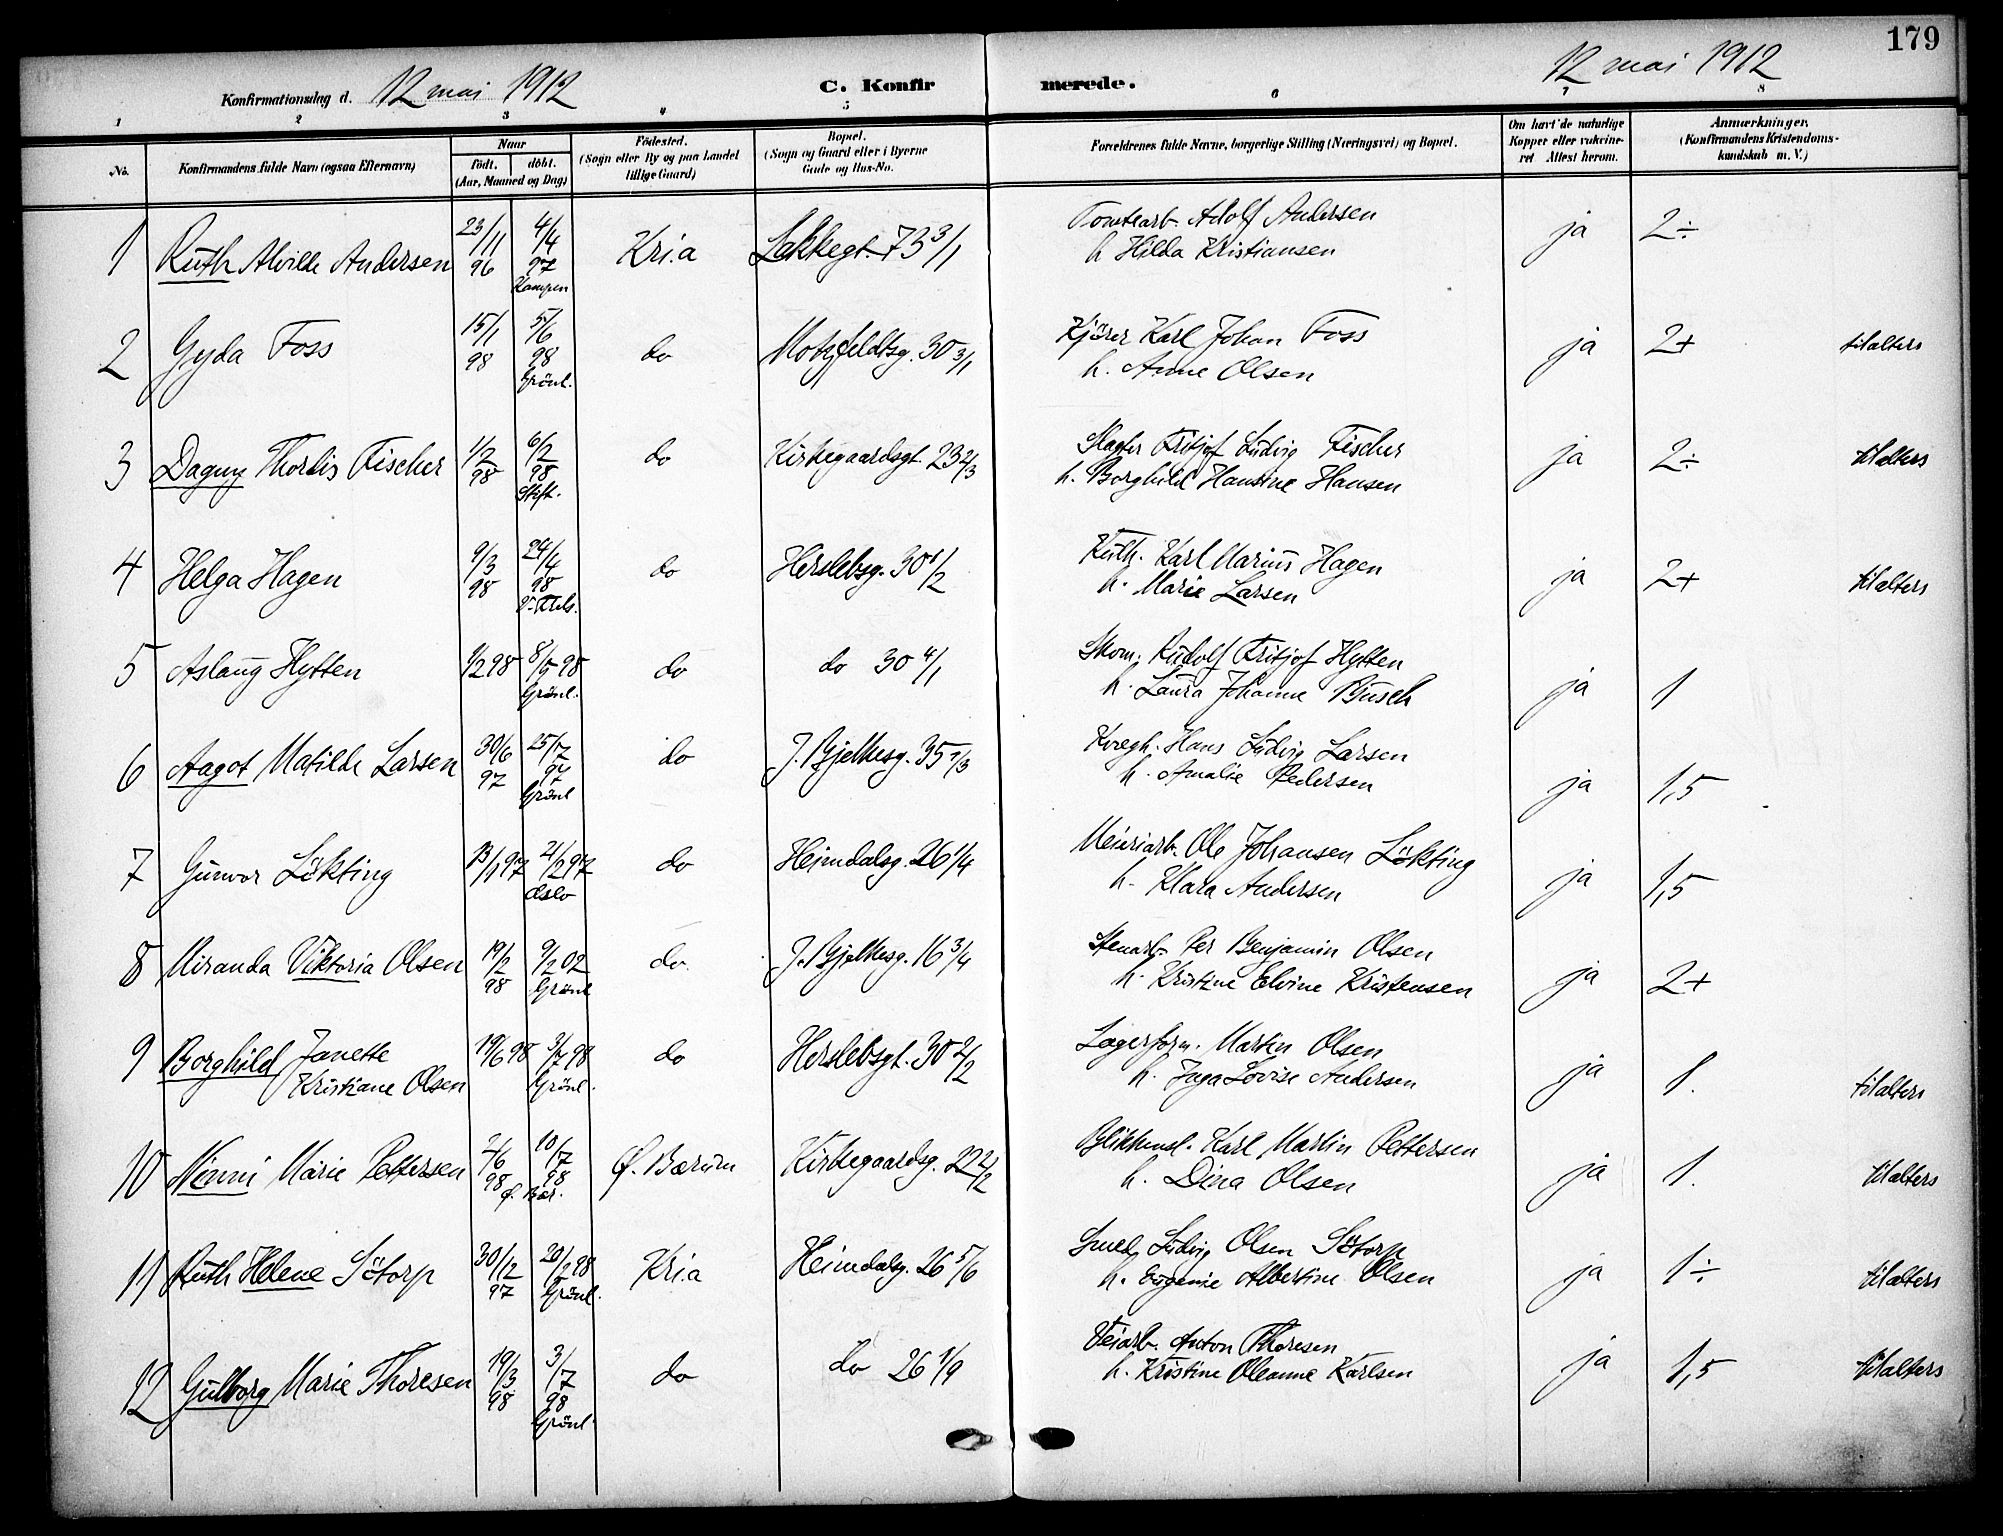 179
Konfirmationsdag d. 12 mai 1912 C. Konfirmerede. 12 mai 1912
1 2 3 4 5 6 7 8
No. Konfirmandens fulde Navn (ogsaa Efternavn) Naar født. døbt. (Aar, Maaned og Dag) Fødested. (Sogn eller By og paa Landet tillige Gaard) Bopæl. (Sogn og Gaard eller i Byerne Gade og Hus-No. Forældrenes fulde Navne, borgerlige Stilling (Næringsvei) og Bopæl. Om havt de naturlige Kopper eller vakcineret Attest herom. Anmærkninger. (Konfirmandens Kristendomskundskab m. V.)
1 Ruth Alvilde Andersen 23/11 96 4/4 97 Kampen Kr.i.a Lakkegt. 73 3/1 Tomtearb. Adolf Andersen ja 2÷
h Hilda Kristiansen
2 Gyda Foss 15/1 98 5/6 98 Grönl. do Motzfeldtsg. 30 3/1 Kjörer Karl Johan Foss ja 2+ til alters
h. Anne Olsen
3 Dagny Thordis Fischer 1/2 98 6/2 98 Stift. do Kirkegaardsgt. 23 2/3 Slagter Fritjof Ludvig Fischer ja 2÷ til alters
h. Borghild Hansine Hansen
4 Helga Hagen 9/3 98 24/4 98 do Herslebsg. 30 1/2 Kusk. Karl Marius Hagen ja 2+ til alters
h. Marie Larsen
5 Aslaug Hytten 1/2 98 8/5 98 Grönl. do do 30 4/1 Skom. Rudolf Fritjof Hytten ja 1
h. Laura Johanne Busch
6 Aagot Matilde Larsen 30/6 97 25/7 97 Grönl do J. Bjelkesg. 35 1/3 Kvægh. Hans Ludvig Larsen ja 1,5
h. Amalie Pedersen
7 Gunvor Lökting 13/1 97 2/2 97 Oslo do Heimdalsg. 26 1/4 Meieriarb. Ole Johansen Lökting ja 1,5
h. Klara Andersen
8 Miranda Viktoria Olsen 19/2 98 9/2 02 Grönl do. J. Bjelkesg. 16 3/4 Stenarb. Per Benjamin Olsen ja 2+
h. Kristine Elvine Kristensen
9 Borghild Janette Kristiane Olsen 19/6 98 3/7 98 Grönl. do Herslebsgt. 30 2/2 Lagerform. Martin Olsen ja 1. til alters
h. Inga Lovise Andersen
10 Nenni Marie Pettersen 2/6 98 10/7 98 Ø. Bær. Ø. Bærum Kirkegaardsg. 22 2/2 Blikkensl. Karl Martin Pettersen ja 1. til alters
h. Dina Olsen
11 Ruth Helene Sötorp 30/12 97 20/2 98 Grönl. Kr.i.a Heimdalsg. 26 5/6 Smed Ludvig Olsen Sötorp ja 1÷ til alters
h. Eugenie Albertine Olsen
12 Gulborg Marie Thoresen 19/3 98 3/7 98 Grönl. do do 26 1/9 Veiarb. Anton Thoresen ja 1,5 til alters
h. Kristine Oleanne Karlsen